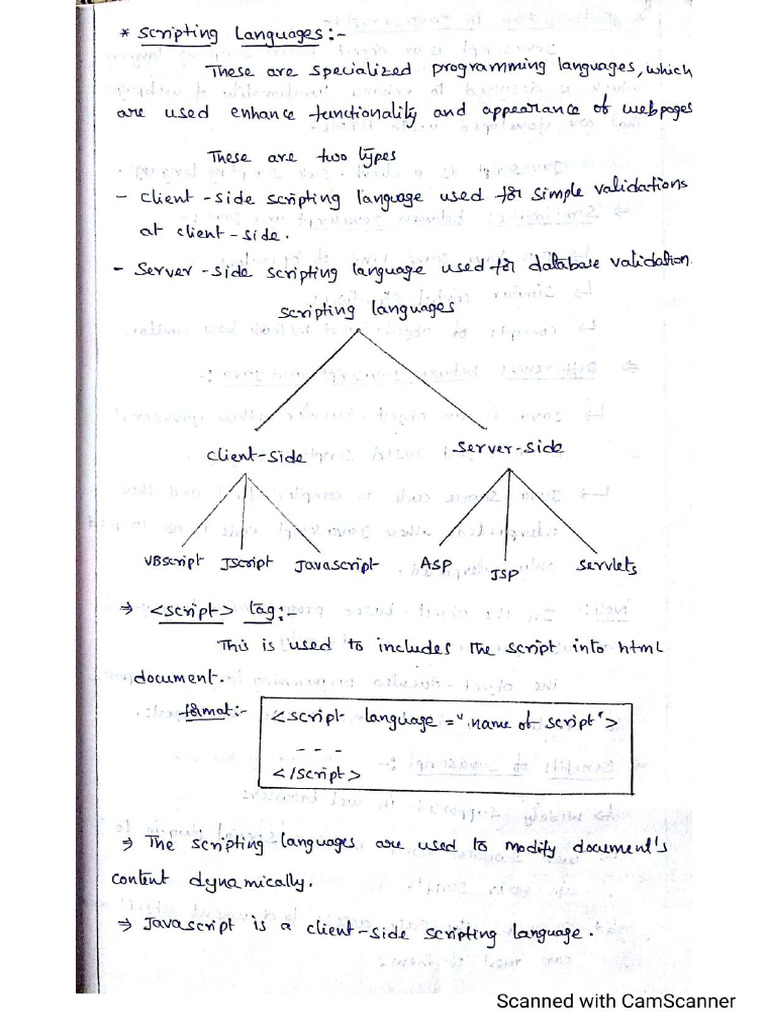 * Scripting Languages:-
These are specialized programming languages, which
are used enhance functionality and appearance of webpages
These are two types
- client-side scripting language used for simple validations
at client-side.
- Server-side scripting language used for database validation.
scripting languages
client-side Server-side
VBscript Jscript Javascript ASP JSP Servlets
⇒ <script> tag:-
This is used to includes the script into html
document.
format:- <script language = "name of script">
- - -
</script>
⇒ The scripting languages are used to modify document's
content dynamically.
⇒ Javascript is a client-side scripting language.
Scanned with CamScanner